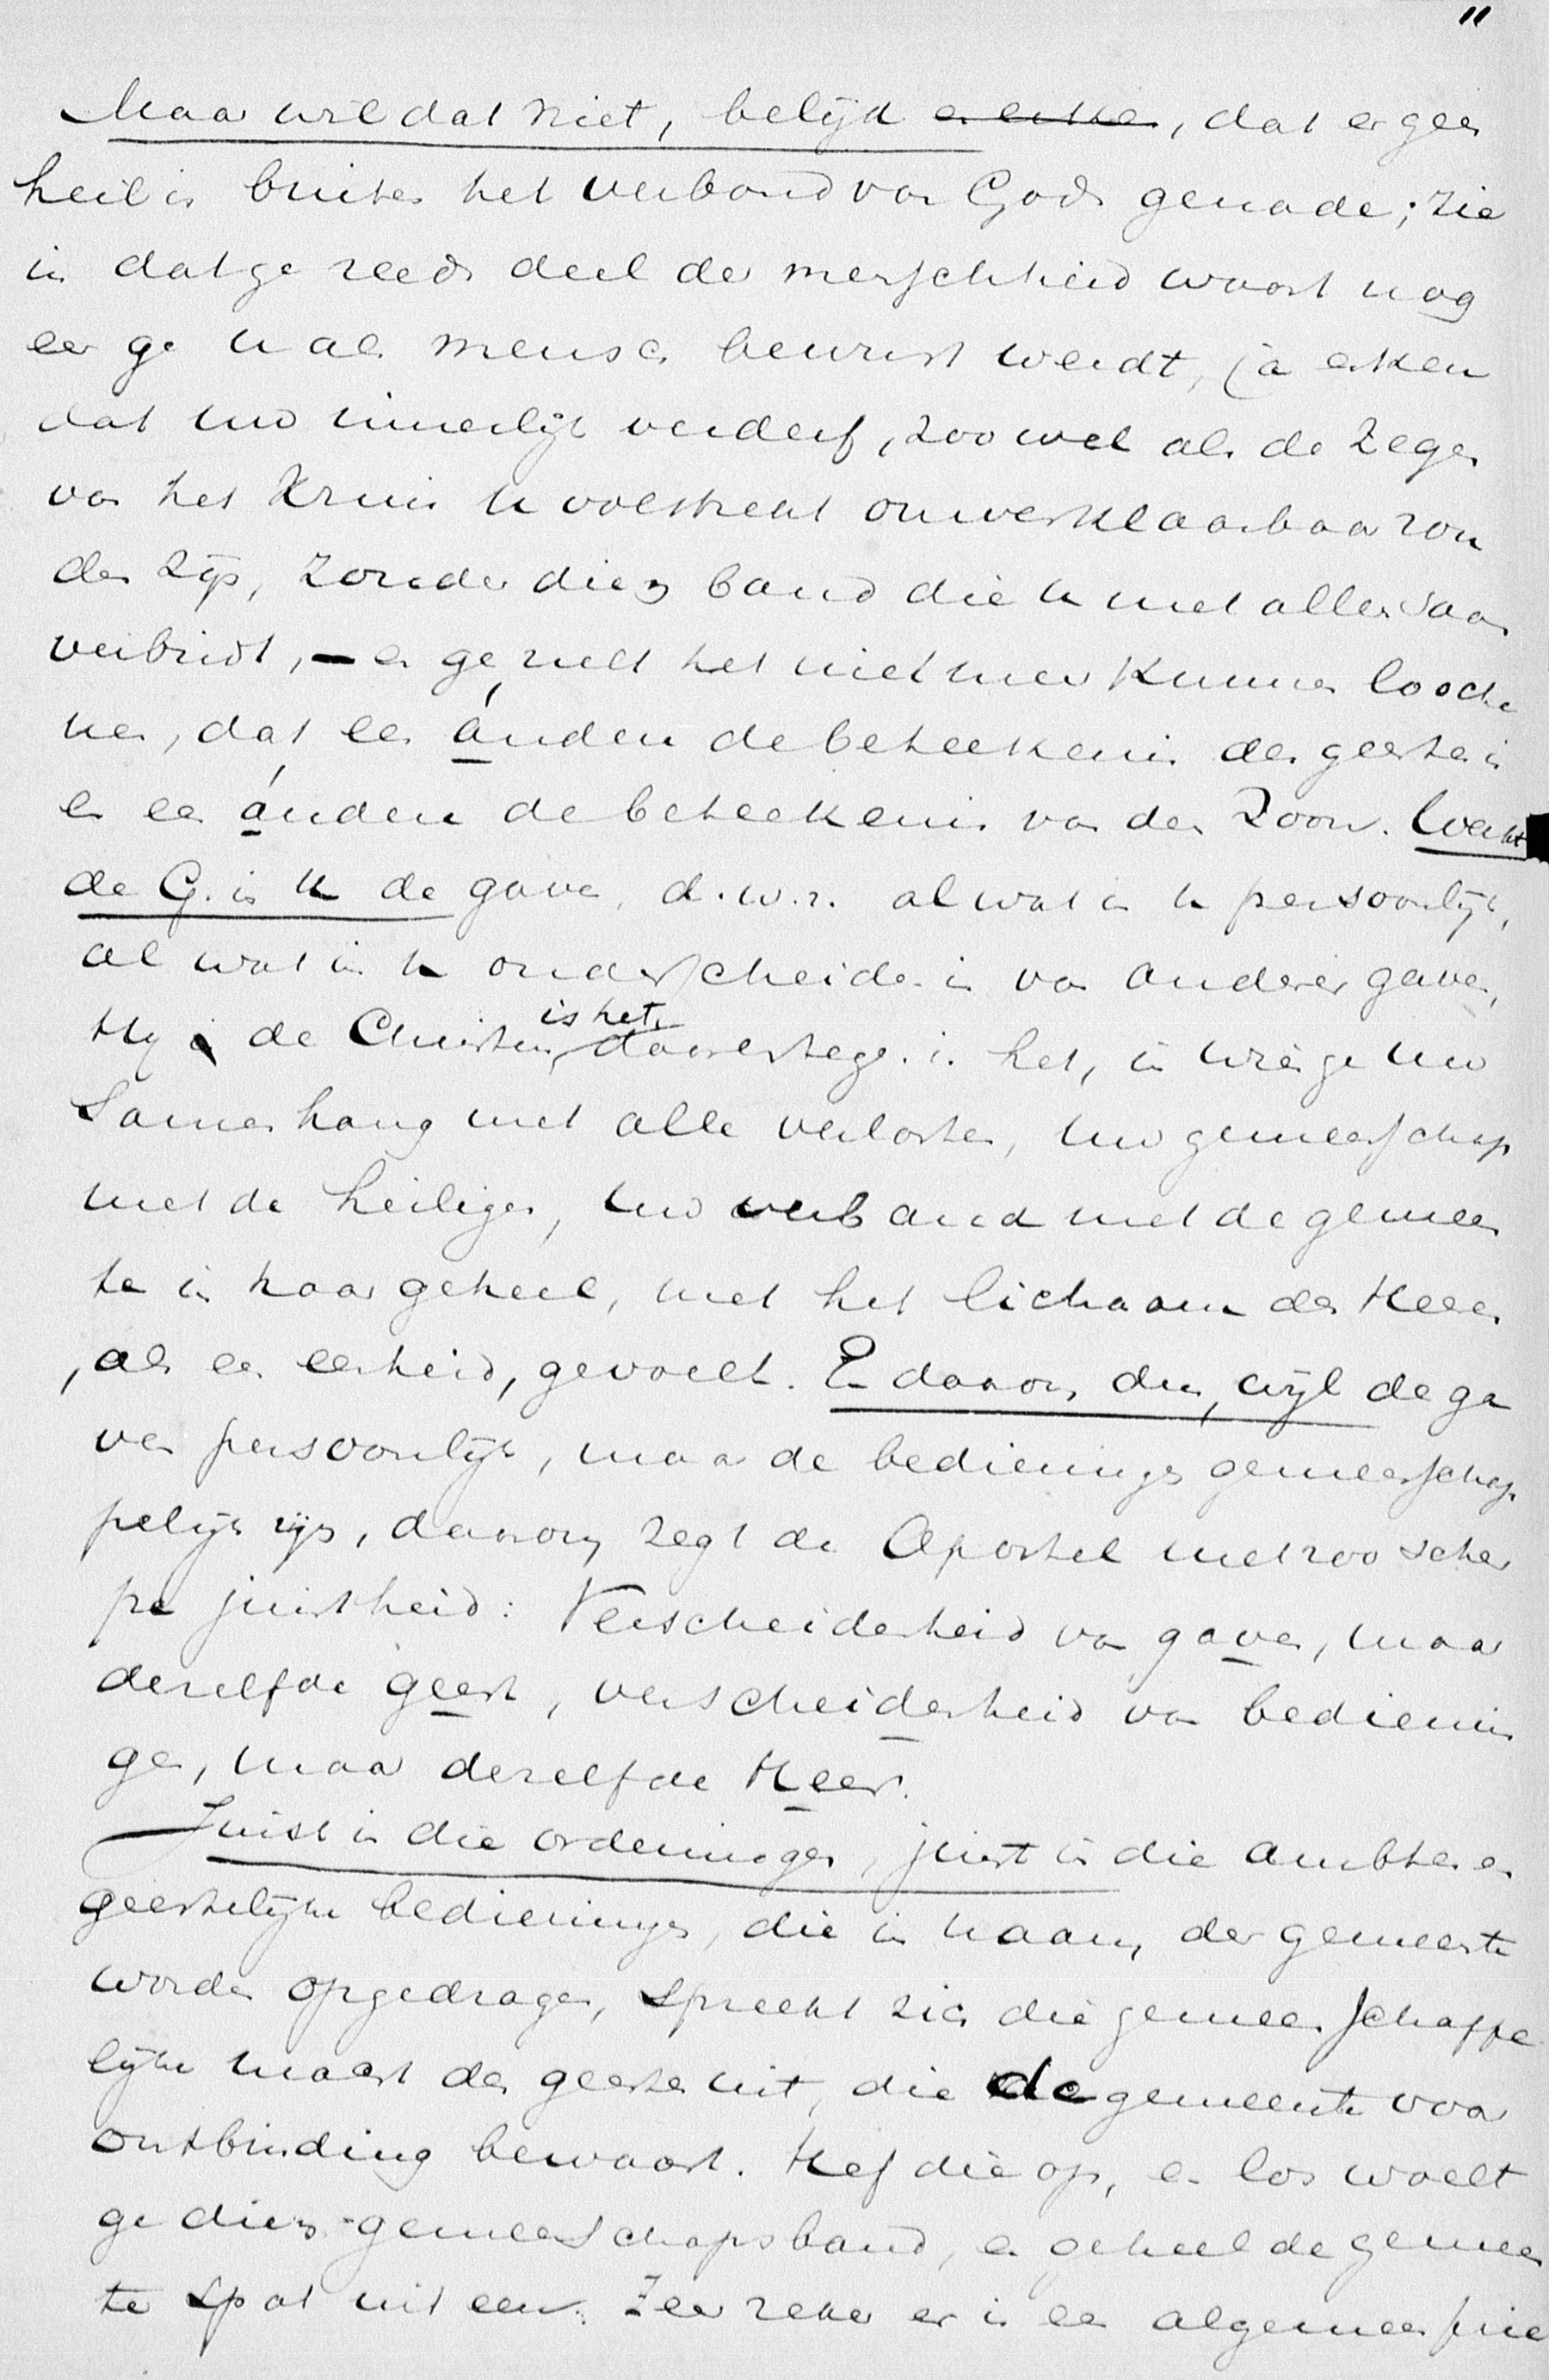 "
Maar wil dat niet, belijd en erken, dat er geen
heil is buiten het verbond van Gods genade; zie
in dat ge reeds deel der menschheid waart nog
eer ge u als mensch bewust werdt, ja erken
dat uw innerlijk verderf, zoowel als de zegen
van het Kruis u volstrekt onverklaarbaar zou
den zijn, zonder dien band die u met allen saam
verbindt, – en ge zult het niet meer kunnen looche
nen, dat een ándere de beteekenis des geestes is
en een ándere de beteekenis van den Zoon. Werkt
de G. in u de gave, d.w.z. al wat in u persoonlijk,
al wat in u onderscheiden is van anderer gaven,
Hij de Christus is het, daarentegen is het, in wien ge uw
samenhang met alle verlosten, uw gemeenschap
met de heiligen, uw verband met de gemeen
te in haar geheel, met het lichaam des Heeren
, als een eenheid, gevoelt. En daarom dus, wijl de ga
ven persoonlijk, maar de bedieningen gemeenschap
pelijk zijn, daarom zegt de Apostel met zoo scher
pe juistheid: Verscheidenheid van gaven, maar
dezelfde geest, verscheidenheid van bedienin
gen, maar dezelfde Heer.
Juist in die ordeningen, juist in die ambten en
geestelijke bedieningen, die in naam der gemeente
worden opgedragen, spreekt zich die gemeenschappe
lijke macht des geestes uit, die de gemeente voor
ontbinding bewaart. Hef die op, en los woelt
ge dien gemeenschapsband, en geheel de gemeen
te spat uit een. Zeer zeker er is een algemeen prie